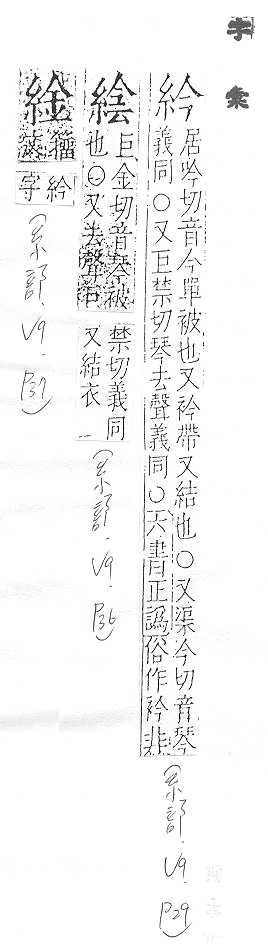 字彙
紟居吟切音今單被也又衿帶又結也○又渠今切音琴
義同○又巨禁切琴去聲義同○六書正譌俗作衿非
(糸部.V9.P29)
䋮巨金切音琴被
也○又去聲巨
禁切義同
又結衣
(糸部.V9.P36)
䋮籀
文紟
字
(糸部.V9.P37)